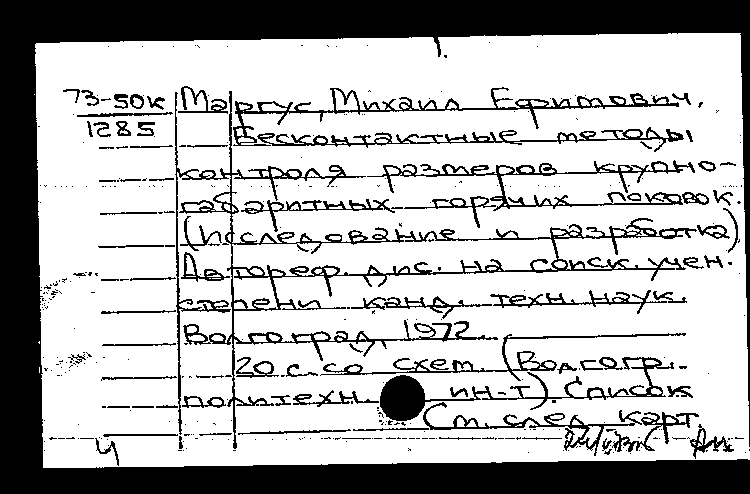 73-50к Маргус, Михаил Ефимович.
1285 Бесконтактные методы
контроля размеров крупно-
габаритных горячих поковок.
(Исследование и разработка)
Автореф. дис. на соиск. учен.
степени канд. техн. наук.
Волгоград, 1972.
20 с. со схем. (Волгогр.
политехн. ин-т). Список
См. след. карт.
Ч